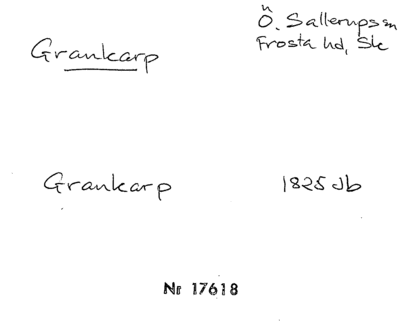 Grankarp
Ö. Sallerups sn
Frosta hd, Sk
Grankarp
1825 Jb
Nr 17618